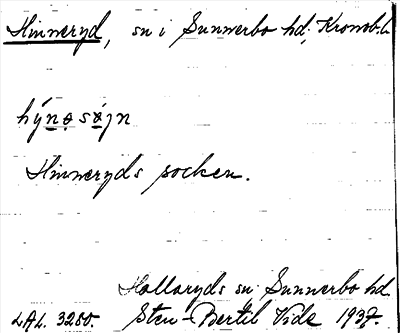 Hinneryd, sn i Sunnerbo hd, Kronob. l.
hy̆nəsɷgn
Hinneryds socken.
Hallaryds sn Sunnerbo hd.
LAL. 3280. Sten-Bertil Vide 1937.